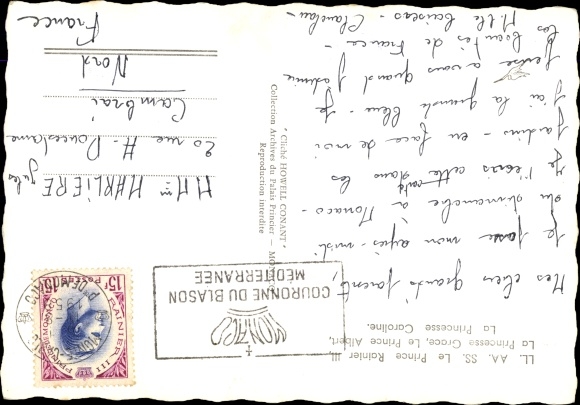 LL. AA. SS. Le Prince Rainier III,
La Princesse Grace, Le Prince Albert,
La Princesse Caroline.
Mes chers grands parents,
Je passe mon après-midi
du dimanche à Monaco -
Je t'écris cette carte dans les
Jardins - en face de moi
j'ai la grande bleue. Je
pense à vous quand j'admire
les beautés de France -
Mille baisers -
"Cliché HOWELL CONANT"
Collection Archives du Palais Princier - MONACO
Reproduction interdite
MONACO
COURONNE DU BLASON
MÉDITERRANÉE
RAINIER III
PRINCE DE MONACO
15F Postes 15F
M Mme MARLIÈRE Jules
20 rue H.
Cambrai
Nord
France